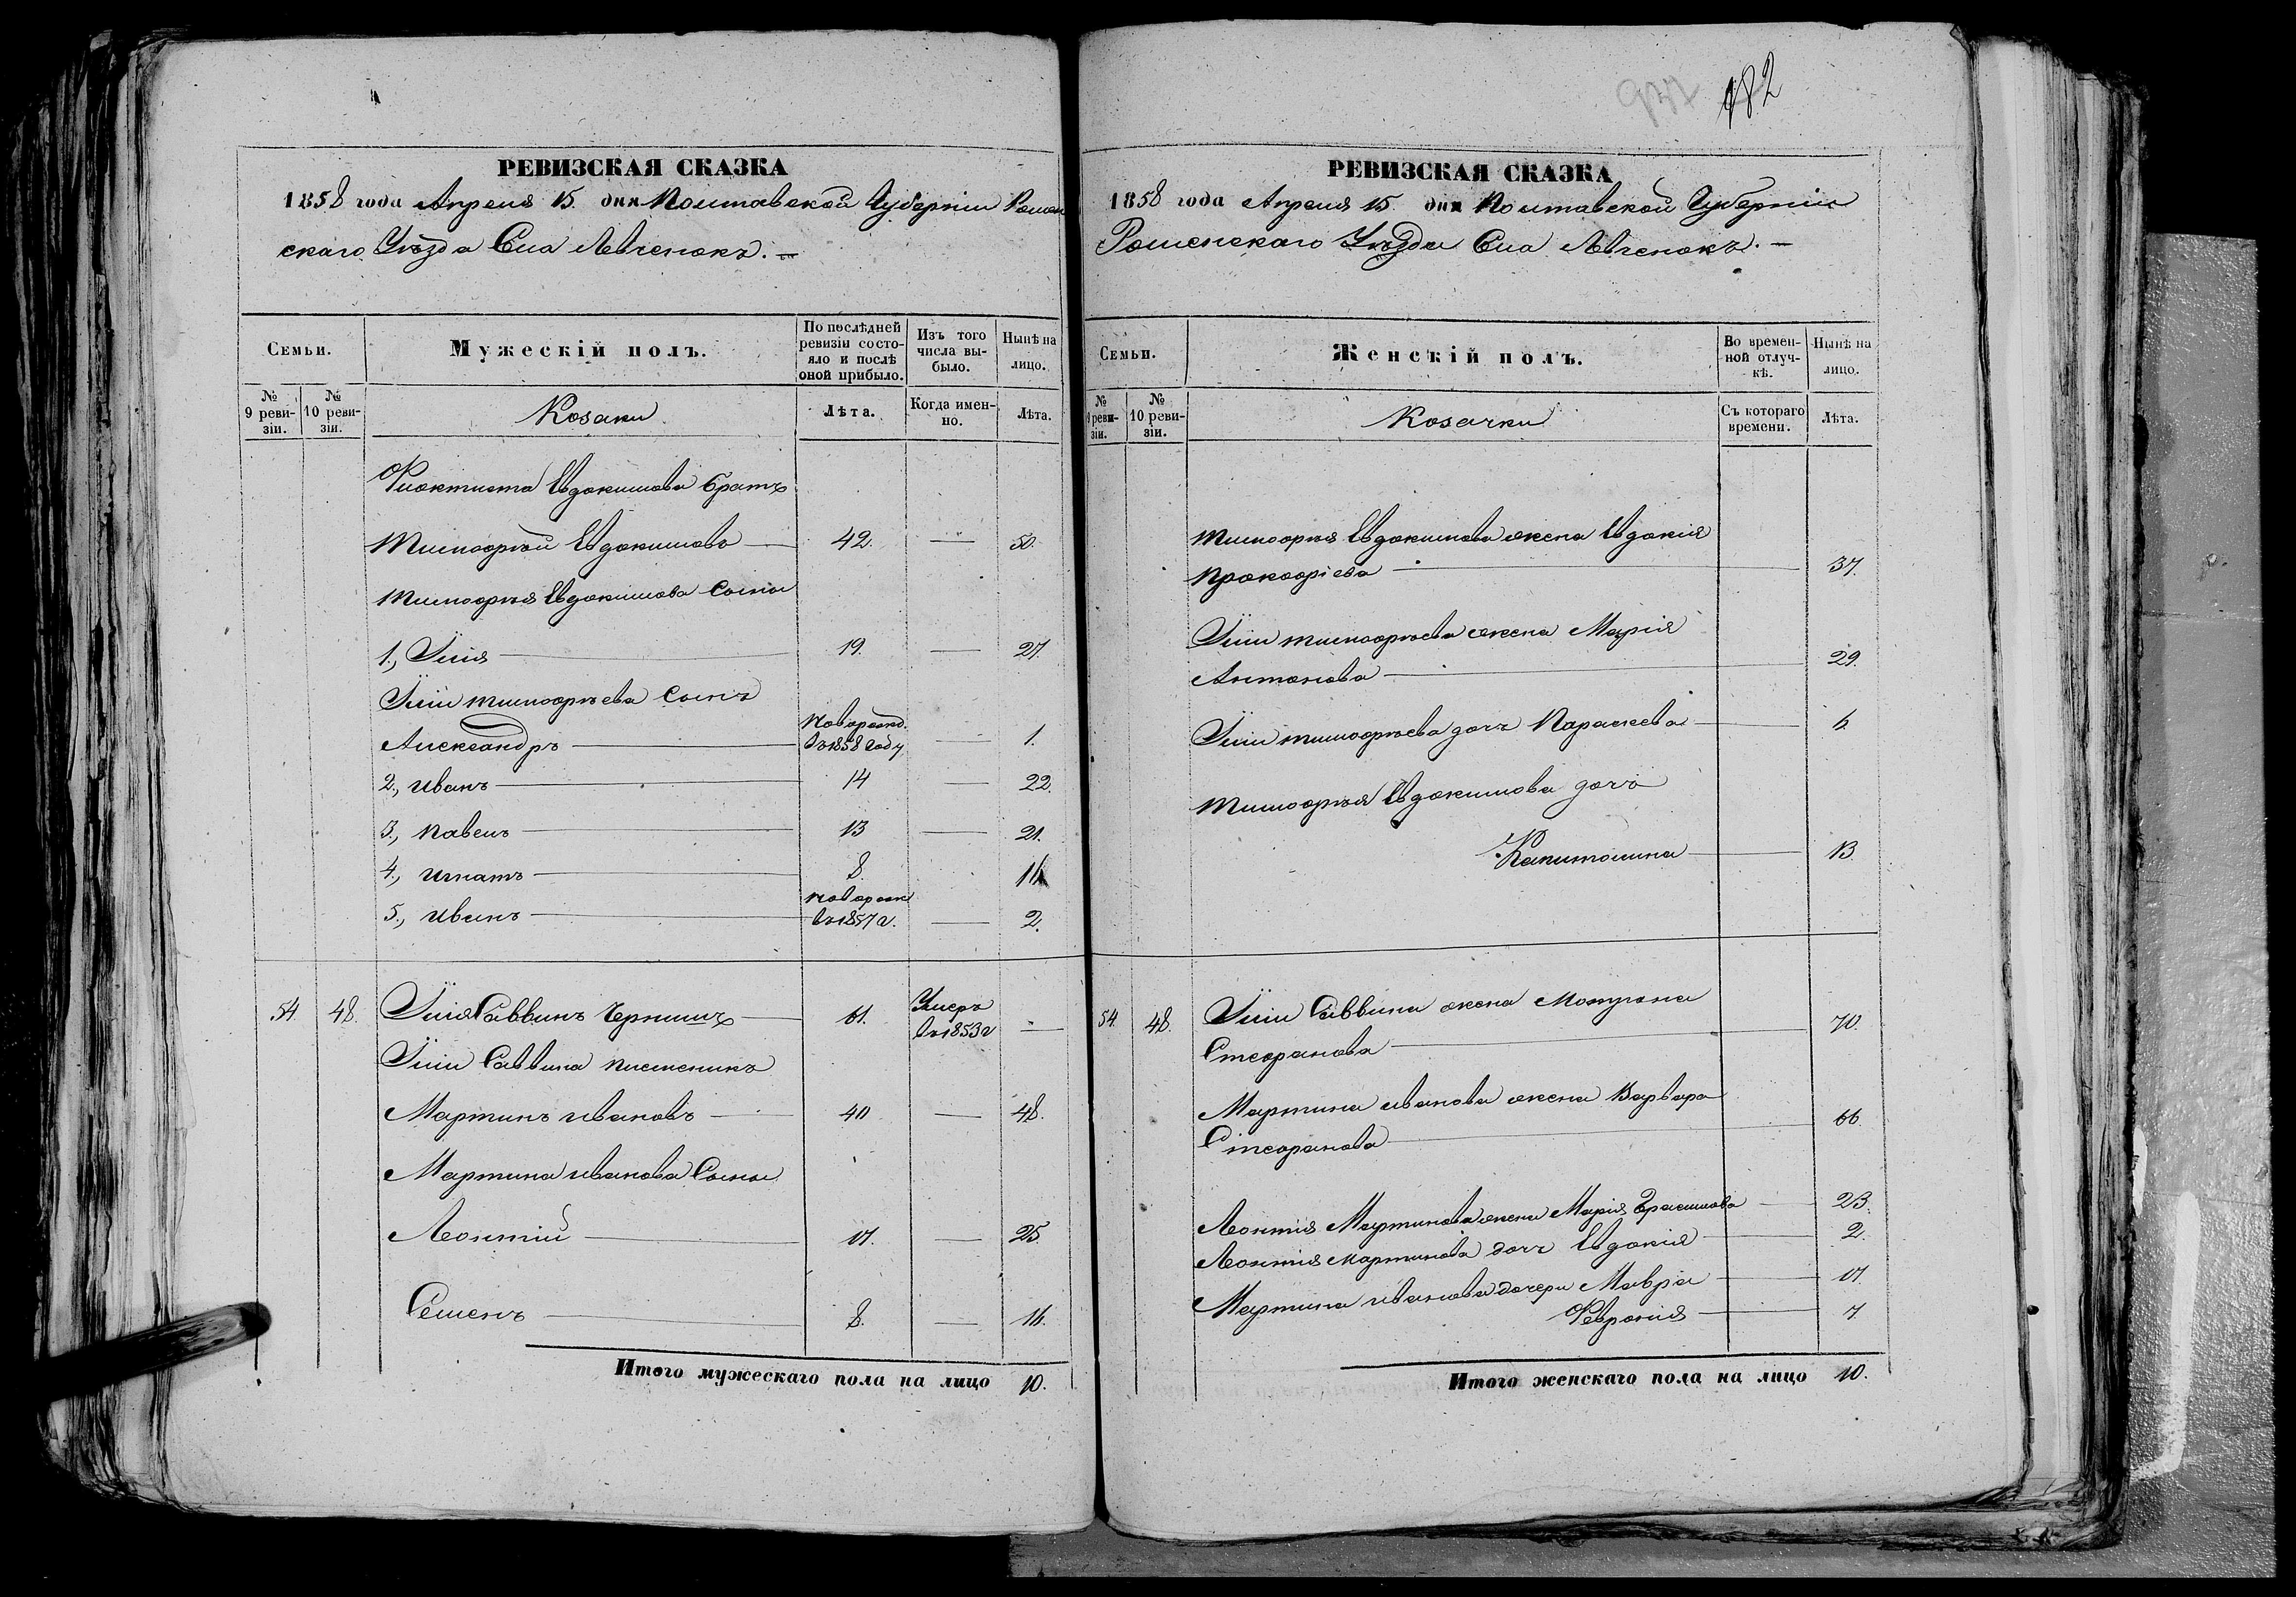 982
РЕВИЗСКАЯ СКАЗКА
1858 года Апреля 15. дня Полтавской Губерніи Ромен
скаго Уѣзда Села Лвченокъ. —
Семьи.
Мужескій полъ.
По послѣдней ревизіи состояло и послѣ оной прибыло.
Изъ того числа выбыло.
Нынѣ на лицо.
№ 9 ревизіи.
№ 10 ревизіи.
Козаки
Лѣта.
Когда именно.
Лѣта.
Фиоктиста Евдокимова братъ
Тимофѣй Евдокимовъ — 42. — 50.
Тимофѣя Евдокимова Сыны
1., Илія — 19. — 27.
Иліи Тимофѣева Сынъ
Александръ — Новорожд. въ 1858 году — 1.
2., Иванъ — 14 — 22.
3., Павелъ — 13 — 21.
4., Игнатъ — 8. 16
5., Иванъ — новорож въ 1857 г. — 2.
54. 48. Илія Саввинъ Чернишъ — 61. Умеръ въ 1853 г —
Иліи Саввина племеникъ
Мартинъ Ивановъ — 40 — 48.
Мартина Иванова Сыны
Леонтій — 17. — 25
Семенъ — 8. — 16.
Итого мужескаго пола на лицо 10.
РЕВИЗСКАЯ СКАЗКА
1858 года Апреля 15. дня Полтавской Губерніи
Роменскаго Уѣзда Села Лвченокъ. —
Семьи.
Женскій полъ.
Во временной отлучкѣ.
Нынѣ на лицо.
№ 9 ревизіи.
№ 10 ревизіи.
Козачки
Съ котораго времени.
Лѣта.
Тимофѣя Евдокимова жена Евдокія
Прокофіева — 37.
Иліи Тимофѣева жена Марія
Антонова — 29.
Иліи Тимофѣева дочь Параскева — 6.
Тимофѣя Евдокимова дочь
Капитолина — 13.
54. 48. Иліи Саввина жена Мотрона
Стефанова — 70.
Мартина Иванова жена Варвара
Стефанова — 66.
Леонтія Мартинова жена Марія Герасимова — 23.
Леонтія Мартинова дочь Евдокія — 2.
Мартина Иванова дочери Мавра — 17.
Февронія — 7.
Итого женскаго пола на лицо 10.